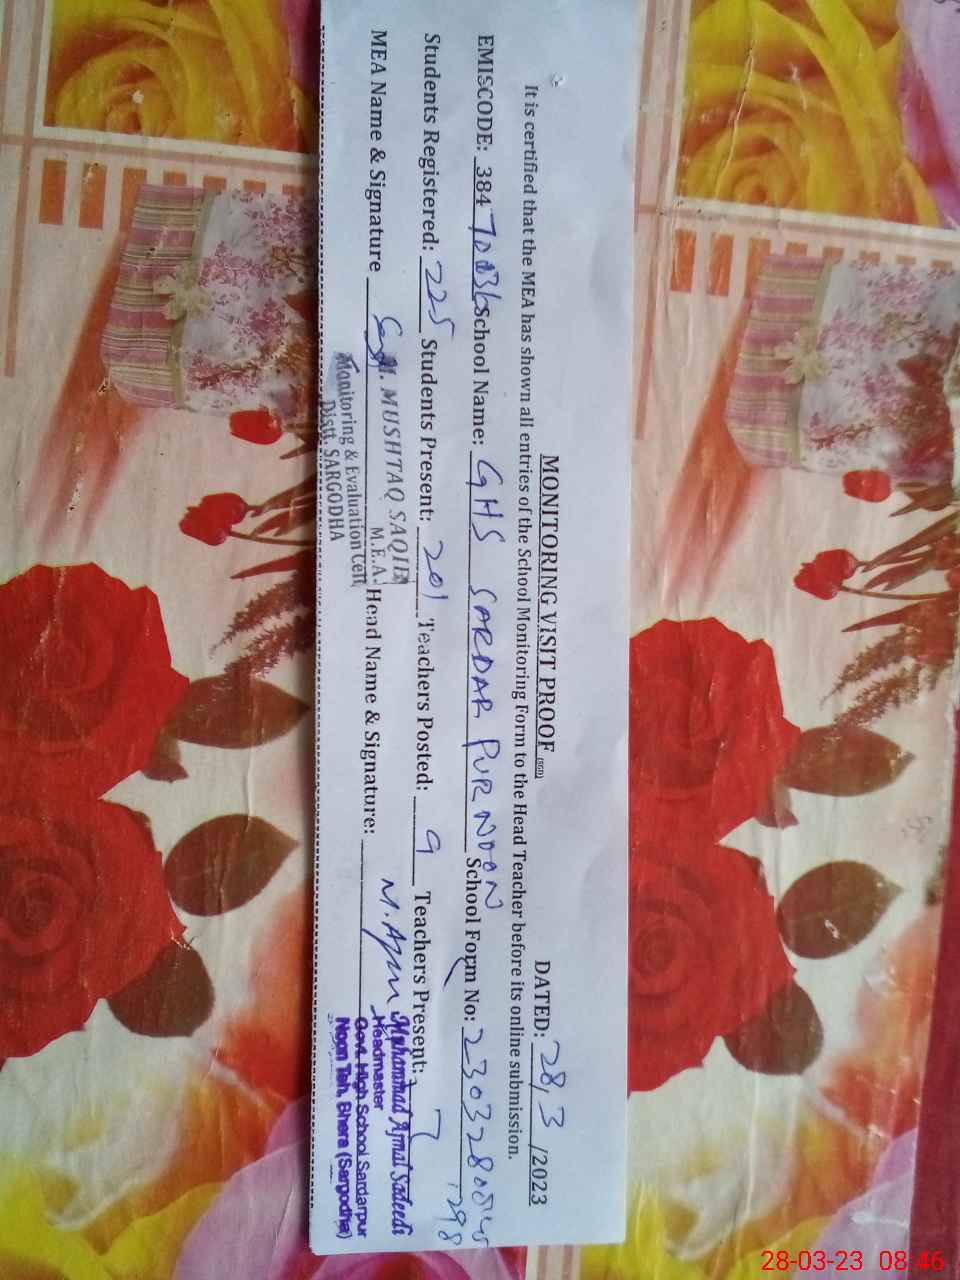 MONITORING VISIT PROOF (SGD) DATED: 28/3/2023
It is certified that the MEA has shown all entries of the School Monitoring Form to the Head Teacher before its online submission.
EMISCODE: 384 School Name: GHS SARDAR PUR NOON School Form No:
Students Registered: 225 Students Present: 201 Teachers Posted: 9 Teachers Present: 7
MEA Name & Signature Head Name & Signature:
M. MUSHTAQ SAQIB
M.E.A.
Monitoring & Evaluation Cell,
Distt. SARGODHA
Muhammad Ajmal Sadeedi
Headmaster
Govt. High School Sardarpur
Noon Teh. Bhera (Sargodha)
28-03-23 08:46